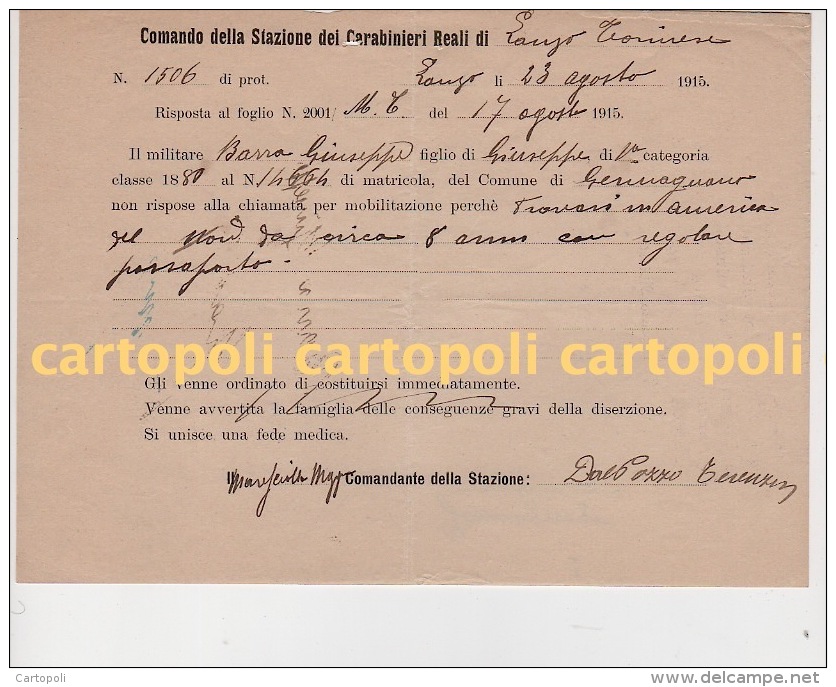 Comando della Stazione dei Carabinieri Reali di Lanzo Torinese
N. 1506 di prot. Lanzo li 23 agosto 1915.
Risposta al foglio N. 2001/ M. T. del 17 agosto 1915.
Il militare Barra Giuseppe figlio di Giuseppe di 1ª categoria
classe 1880 al N. 14664 di matricola, del Comune di Germagnano
non rispose alla chiamata per mobilitazione perchè trovasi in america
del Nord da circa 8 anni con regolare
passaporto.
cartopoli cartopoli cartopoli
Gli venne ordinato di costituirsi immediatamente.
Venne avvertita la famiglia delle conseguenze gravi della diserzione.
Si unisce una fede medica.
Il Maresciallo Comandante della Stazione: Dal Pozzo
Cartopoli
www.delcampe.net